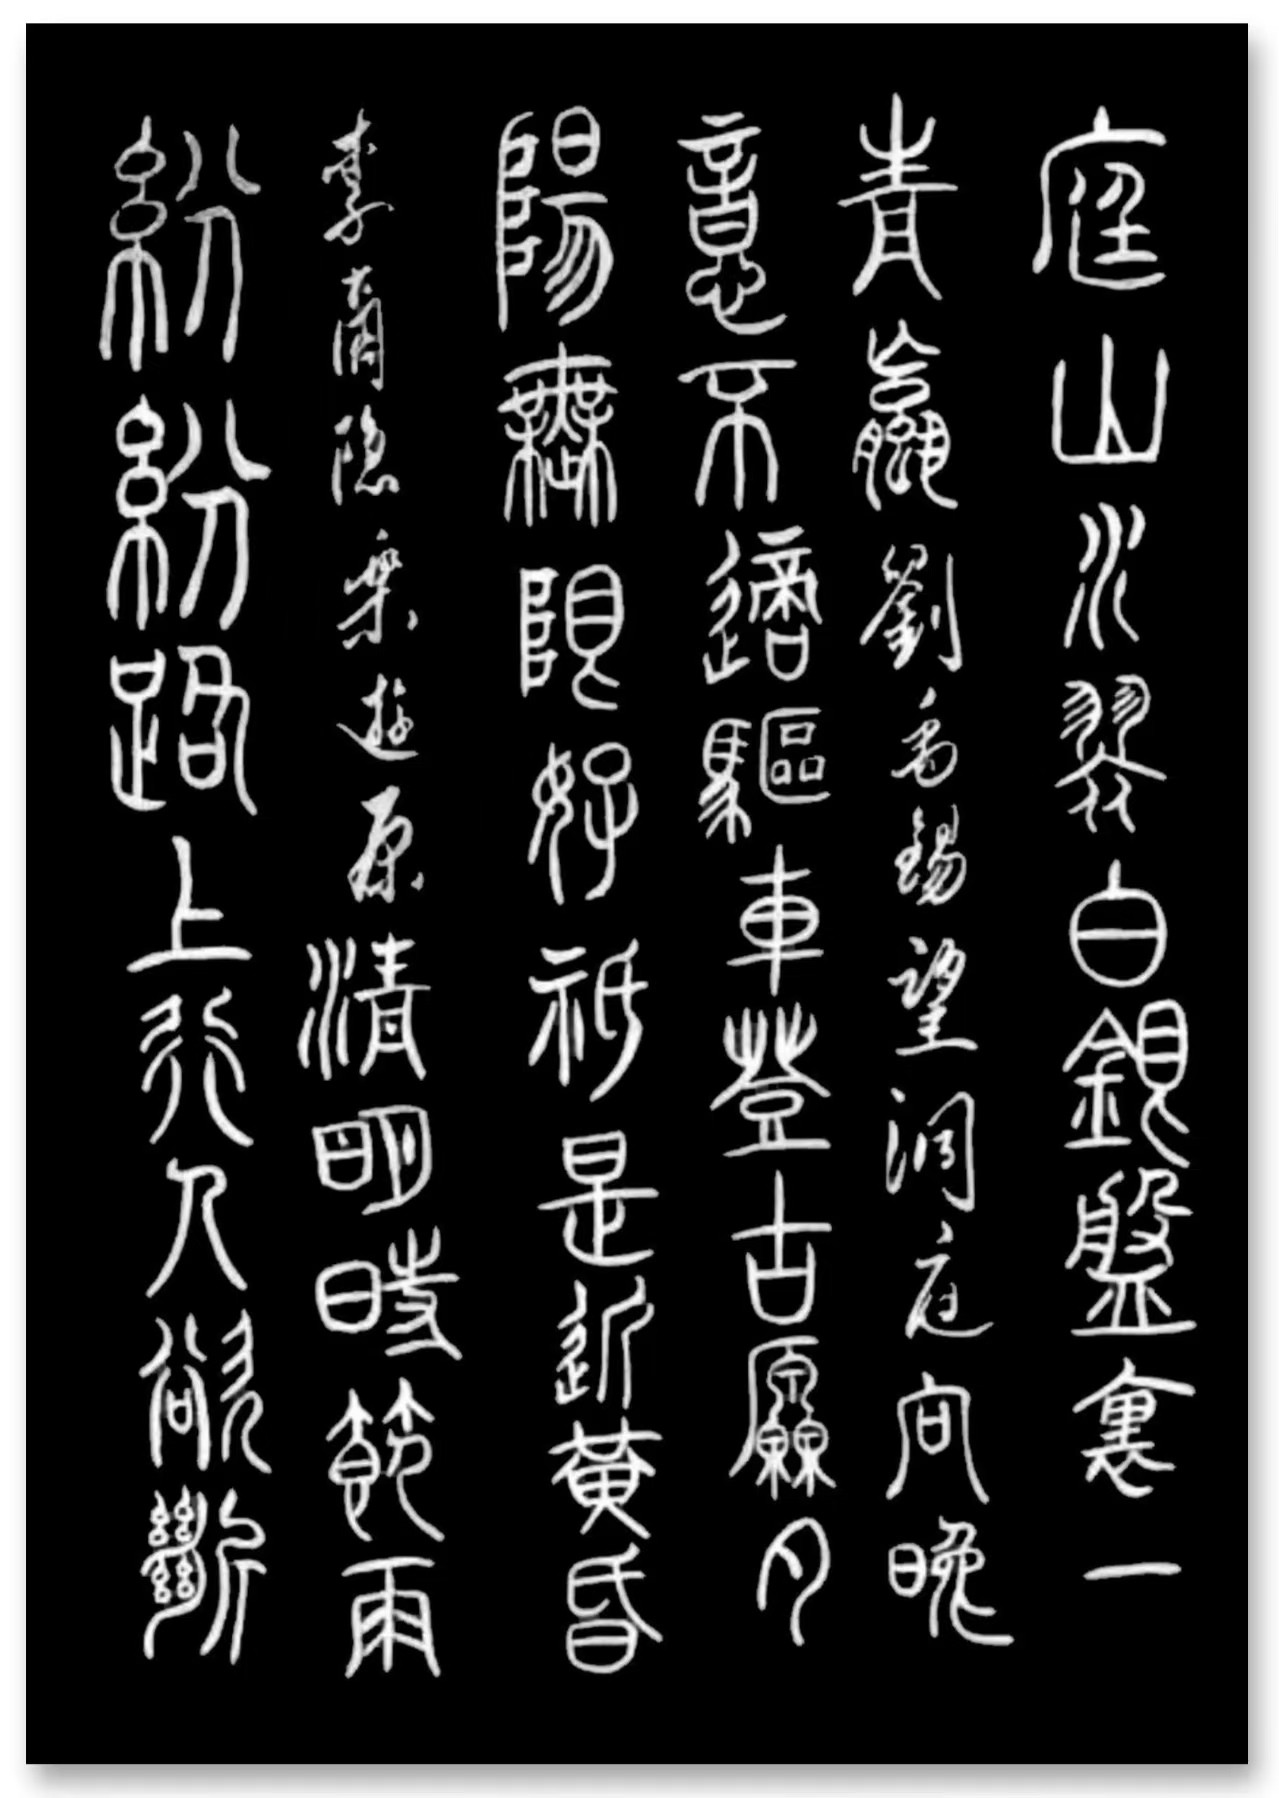 庭山水翠白銀盤裏一
青蠃劉禹錫望洞庭向晚
意不適驅車登古厵夕
陽無限好祇是近黃昏
李商隐樂遊原清明時節雨
紛紛路上行人欲斷